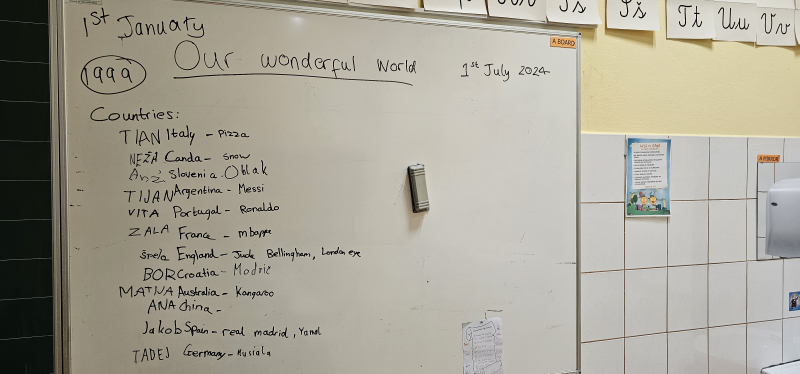 1st January
1999
Our wonderful World
1st July 2024
A BOARD
Countries:
TIAN Italy - Pizza
NEŽA Canda - snow
Anž Slovenia - Oblak
TIJAN Argentina - Messi
VITA Portugal - Ronaldo
ZALA France - mbappe
Špela England - Jude Bellingham, London eye
BOR Croatia - Modrić
Australia - Kangaroo
ANA China -
Jakob Spain - real madrid, Yamal
TADEJ Germany - Musiala
Šš
Tt
Uu
Vv